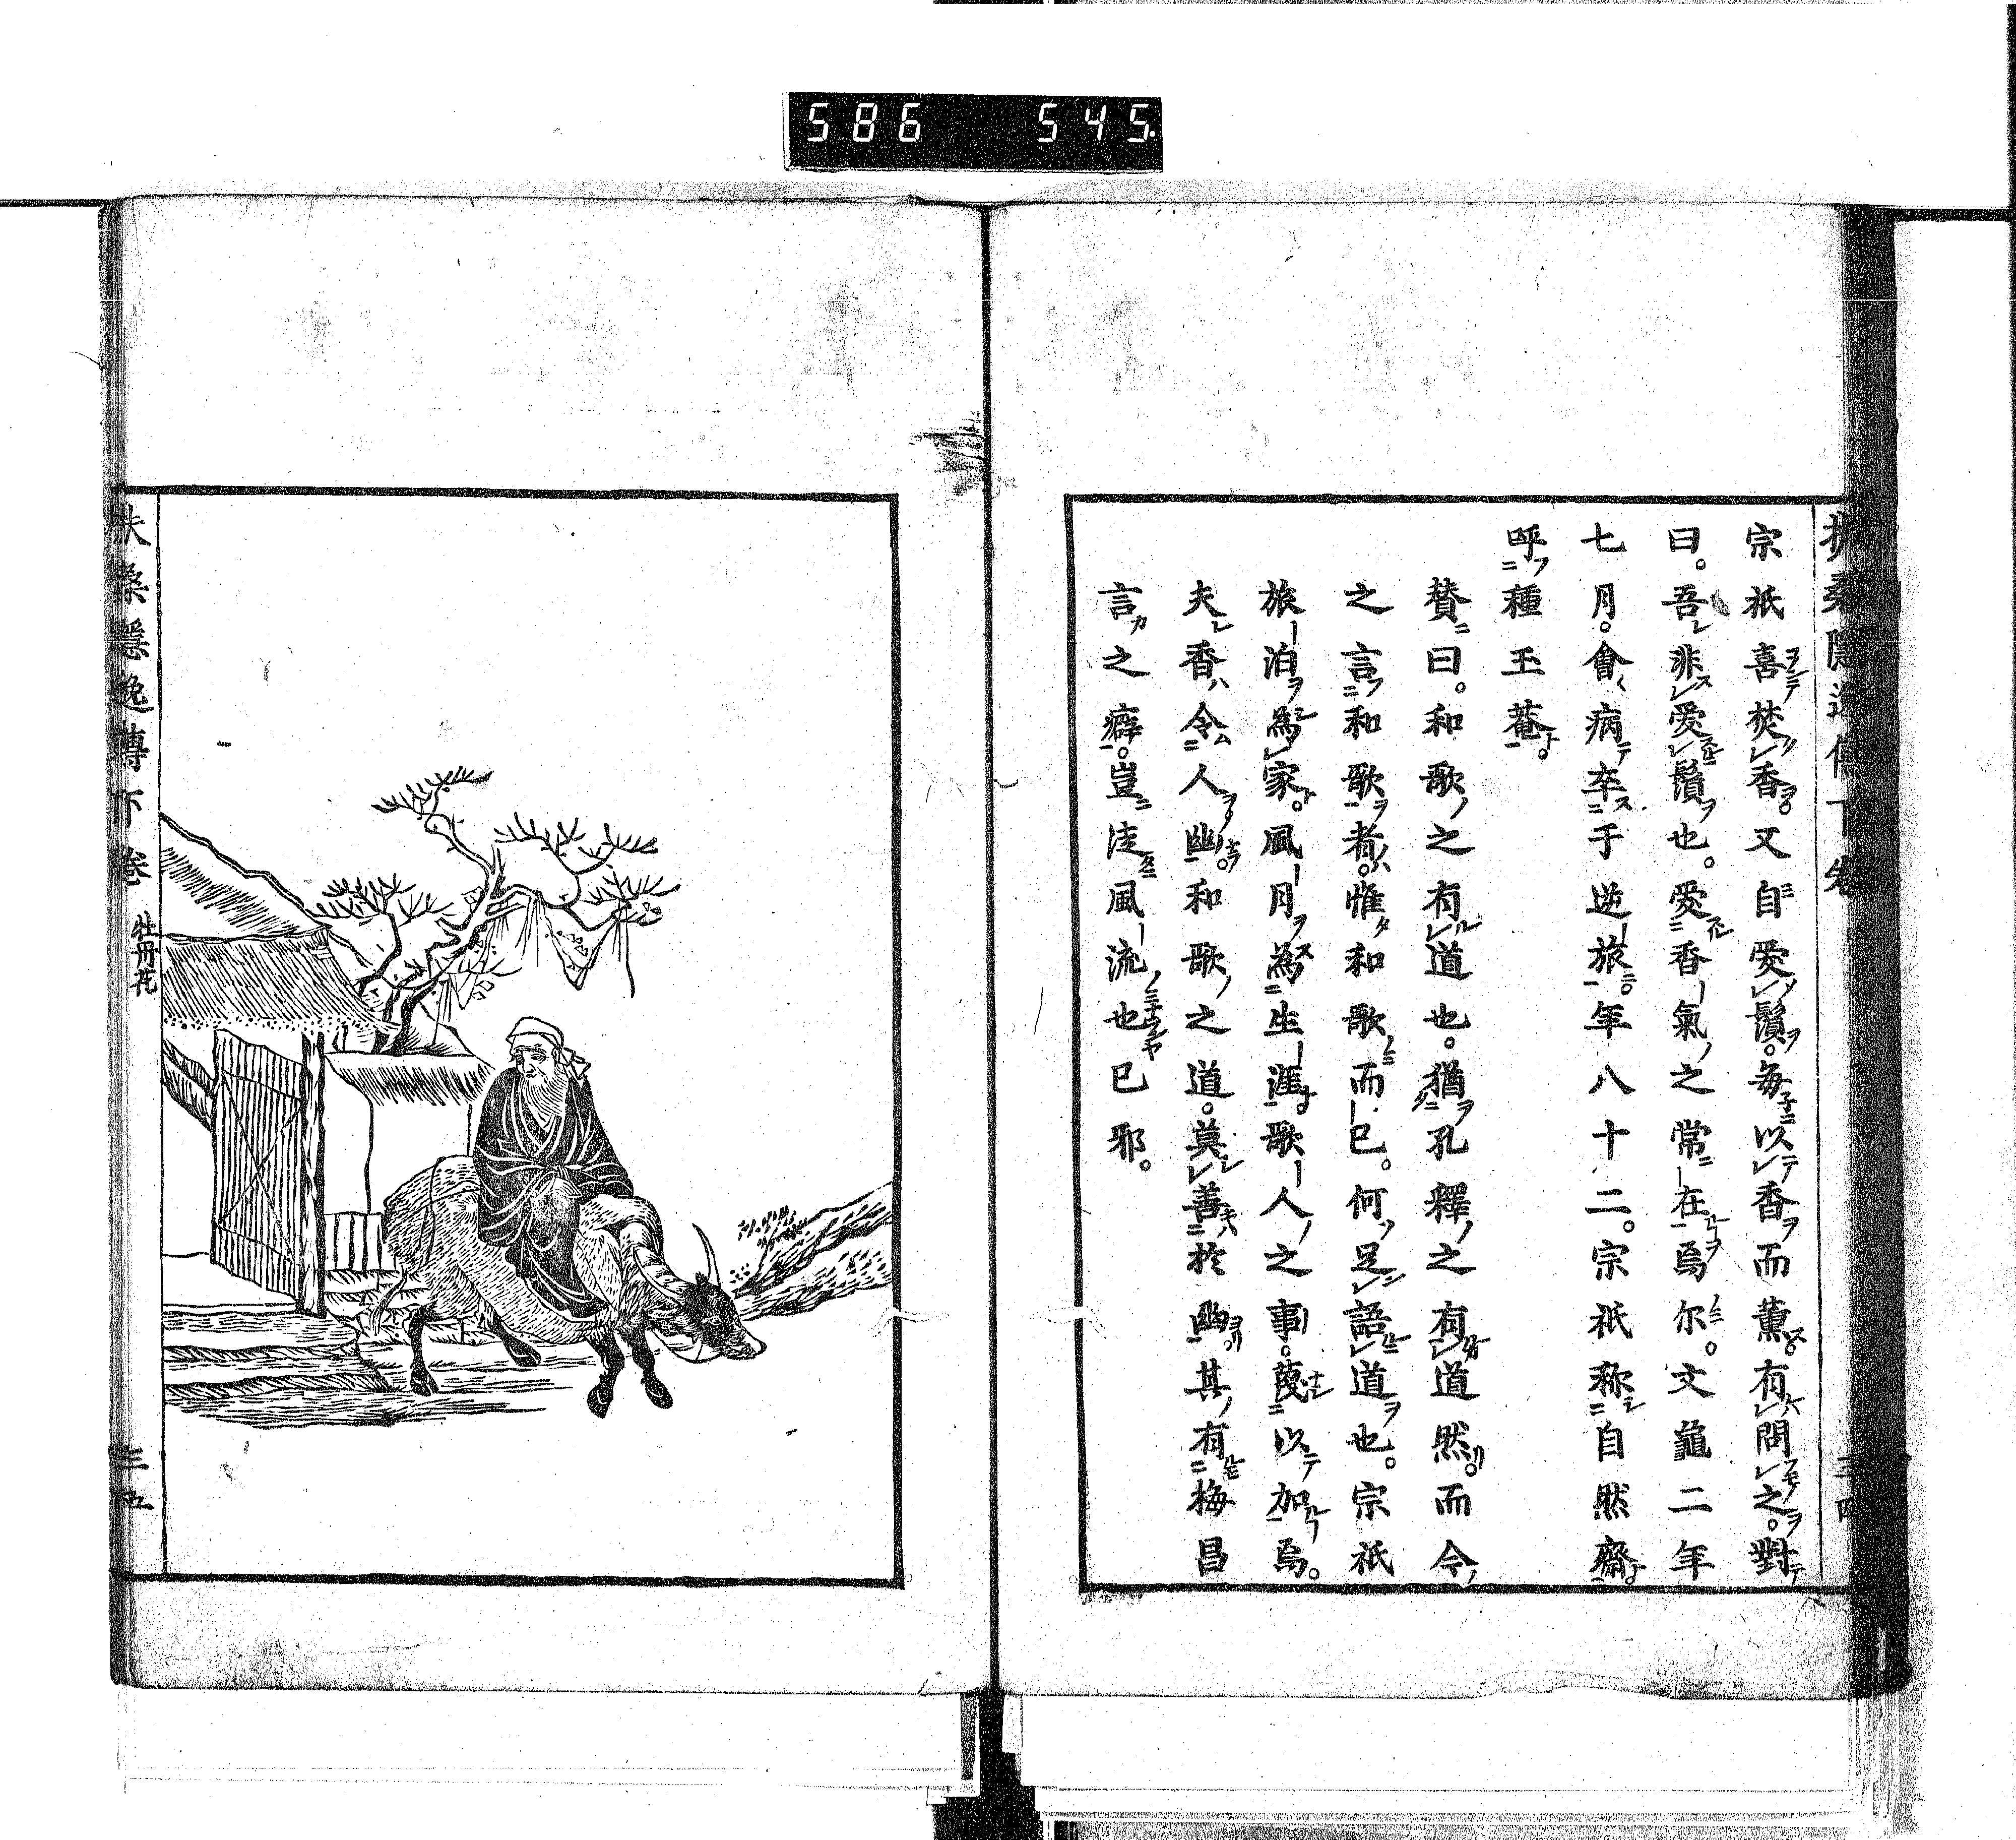 586 545
宗祇喜焚香。又自愛鬚。每以香而薰。有問之。對
曰。吾非愛鬚也。愛香氣之常在焉尔。文龜二年
七月。會病卒于逆旅。年八十二。宗祇称自然齋
呼種玉菴。
賛曰。和歌之有道也。猶孔釋之有道然。而今
之言和歌者。惟和歌而已。何足語道也。宗祇
旅泊為家。風月為生涯。歌人之事。蔑以加焉。
夫香令人幽。和歌之道。莫善於幽。其有梅昌
言之癖。豈徒風流也已邪。
扶桑隱逸傳下卷 牡丹花 三五